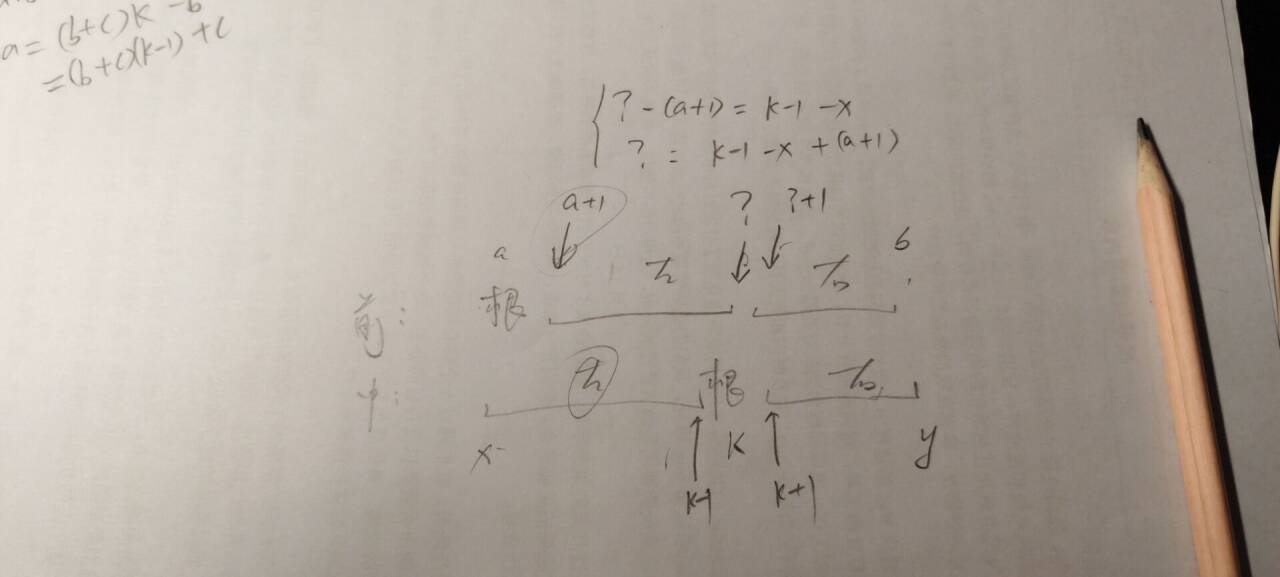 a = (b+c)k - b
= (b+c)(k-1) + c
? - (a+1) = k-1 - x
? = k-1 - x + (a+1)
a+1 ? ?+1
a 左 右 b
前: 根
中: 左 根 右
x k y
k-1 k+1